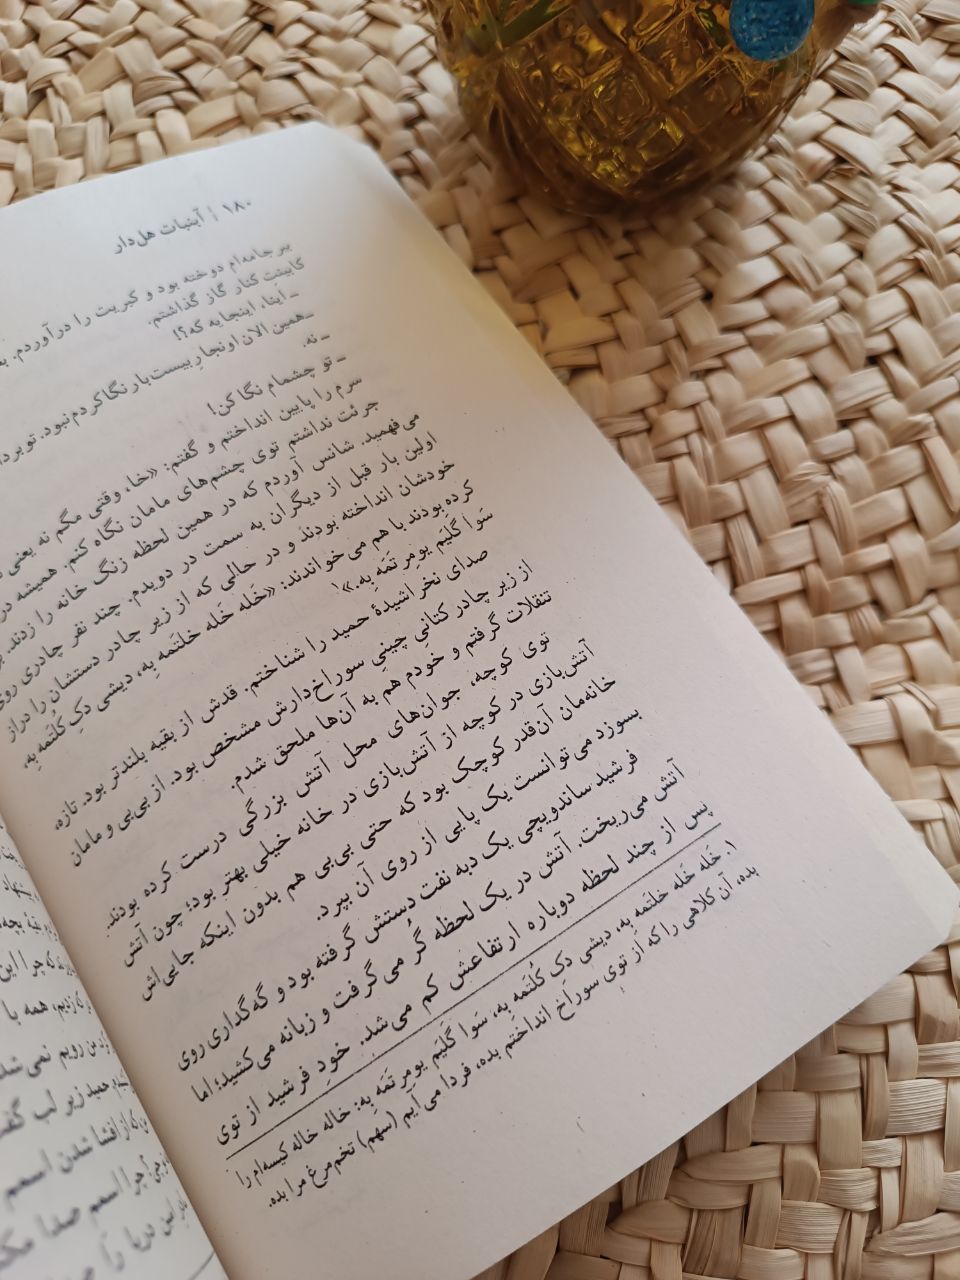 ۱۸۰ | آبنبات هل‌دار
بر جامه‌ام دوخته بود و کبریت را درآوردم.
کابینت کنار گاز گذاشتم.
ـ ایناَ، اینجایه که؟!
ـ همین الان اونجا رِ بیست بار نگا کردم نبود. تو
ـ نه.
ـ تو چشمام نگا کن!
سرم را پایین انداختم و گفتم: «خا، وقتی مگم نه یعنی
جرئت نداشتم توی چشم‌های مامان نگاه کنم. همیشه
می‌فهمید. شانس آوردم که در همین لحظه زنگ خانه را زدند.
اولین بار قبل از دیگران به سمت در دویدم. چند نفر چادری روی
خودشان انداخته بودند و در حالی که از زیر چادر دستشان را دراز
کرده بودند با هم می‌خواندند: «خَله خَله خلتَمه بِه، دیشی دکِ کُلتَمه بِه،
سَوا گلیَم یومِر تَمَه بِه.»۱
صدای نخراشیدهٔ حمید را شناختم. قدش از بقیه بلندتر بود. تازه،
از زیر چادر کتانی چینیِ سوراخ‌دارش مشخص بود. از بی‌بی و مامان
تنقلات گرفتم و خودم هم به آن‌ها ملحق شدم.
توی کوچه، جوان‌های محل آتش بزرگی درست کرده بودند.
آتش‌بازی در کوچه از آتش‌بازی در خانه خیلی بهتر بود؛ چون آتش
خانه‌مان آن‌قدر کوچک بود که حتی بی‌بی هم بدون اینکه جایی‌اش
بسوزد می‌توانست یک پایی از روی آن بپرد.
فرشید ساندویچی یک دبه نفت دستش گرفته بود و گه‌گداری روی
آتش می‌ریخت. آتش در یک لحظه گُر می‌گرفت و زبانه می‌کشید؛ اما
پس از چند لحظه دوباره ارتفاعش کم می‌شد. خودِ فرشید از توی
۱. خَله خَله خلتَمه بِه، دیشی دَک کُلتَمه بِه، سَوا گلیَم یومِر تَمَه بِه: خاله خاله کیسه‌ام را
بده، آن کلاهی را که از توی سوراخ انداختم بده، فردا می‌آیم (سهم) تخم‌مرغ مرا بده.
همه با
رویم نمی‌شد
حمید زیر لب گفت
از افشا شدن اسمم
چرا اسمم صدا
این دریا را